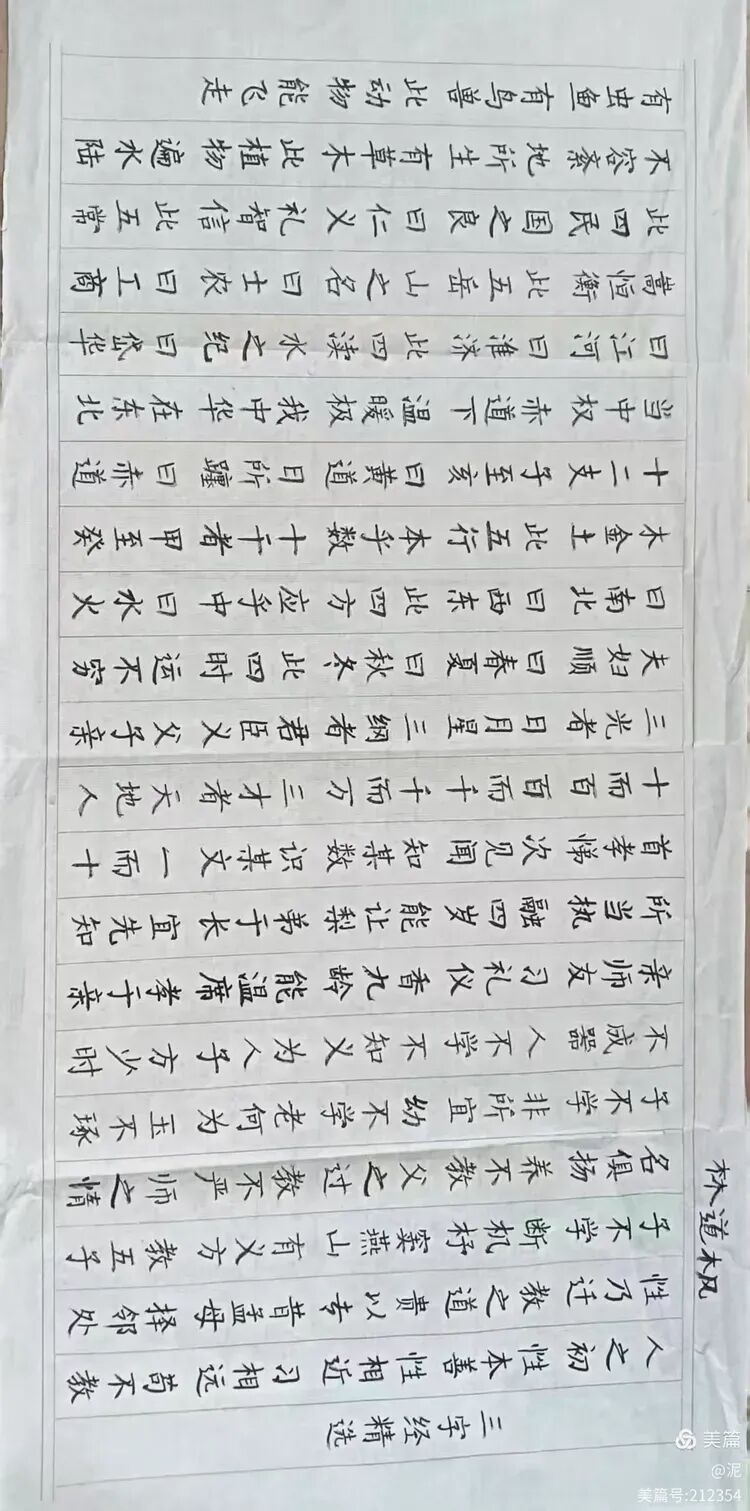 三字经精选
人之初性本善性相近习相远苟不教
性乃迁教之道贵以专昔孟母择邻处
子不学断机杼窦燕山有义方教五子
名俱扬养不教父之过教不严师之惰
子不学非所宜幼不学老何为玉不琢
不成器人不学不知义为人子方少时
亲师友习礼仪香九龄能温席孝于亲
所当执融四岁能让梨弟于长宜先知
首孝悌次见闻知某数识某文一而十
十而百百而千千而万三才者天地人
三光者日月星三纲者君臣义父子亲
夫妇顺曰春夏曰秋冬此四时运不穷
曰南北曰西东此四方应乎中曰水火
木金土此五行本乎数十干者甲至癸
十二支子至亥曰黄道日所躔曰赤道
当中权赤道下温暖极我中华在东北
曰江河曰淮济此四渎水之纪曰岱华
嵩恒衡此五岳山之名曰士农曰工商
此四民国之良曰仁义礼智信此五常
不容紊地所生有草木此植物遍水陆
有虫鱼有鸟兽此动物能飞走
林道枫
美篇
@泥
美篇号:212354